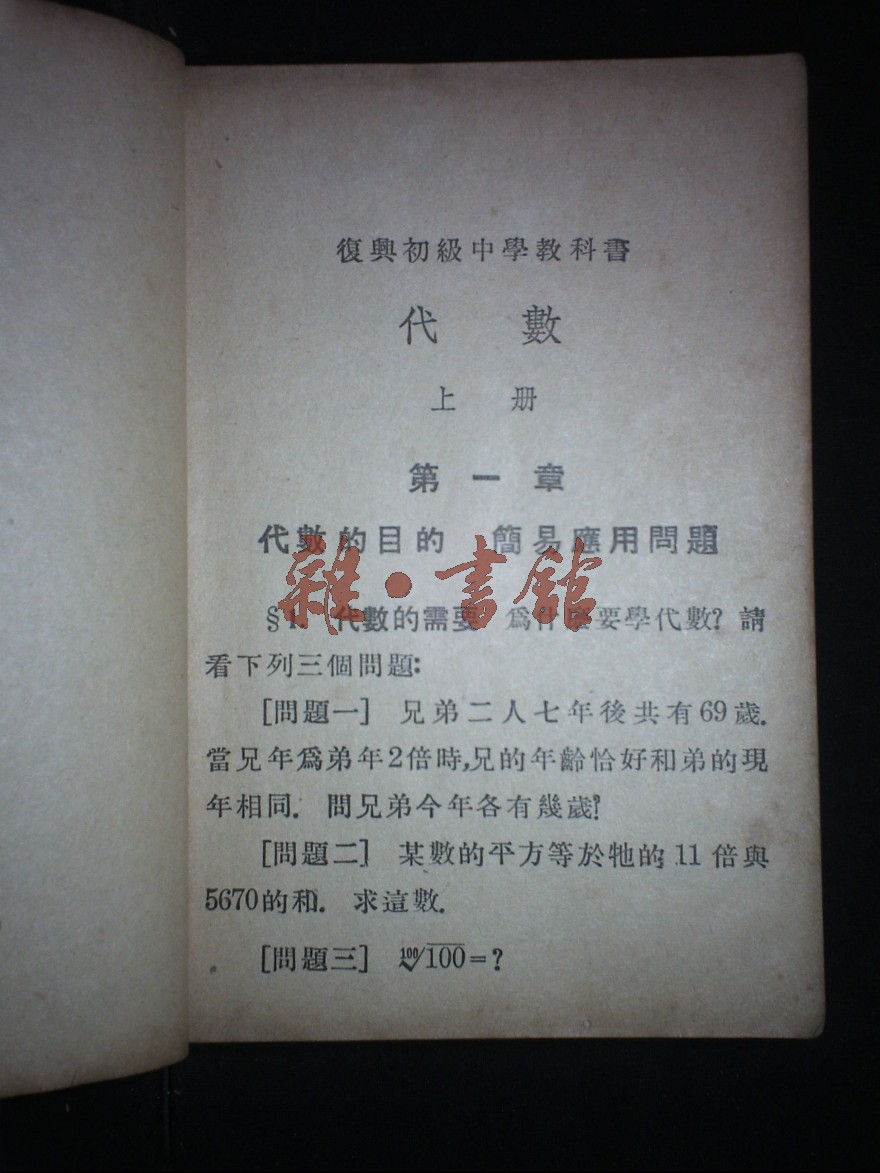 復興初級中學教科書
代數
上册
第一章
代數的目的 簡易應用問題
雜·書館
§1. 代數的需要 爲什麼要學代數？請
看下列三個問題:
[問題一] 兄弟二人七年後共有69歲.
當兄年爲弟年2倍時,兄的年齡恰好和弟的現
年相同. 問兄弟今年各有幾歲?
[問題二] 某數的平方等於牠的11倍與
5670的和. 求這數.
[問題三] ¹⁰⁰√100=?